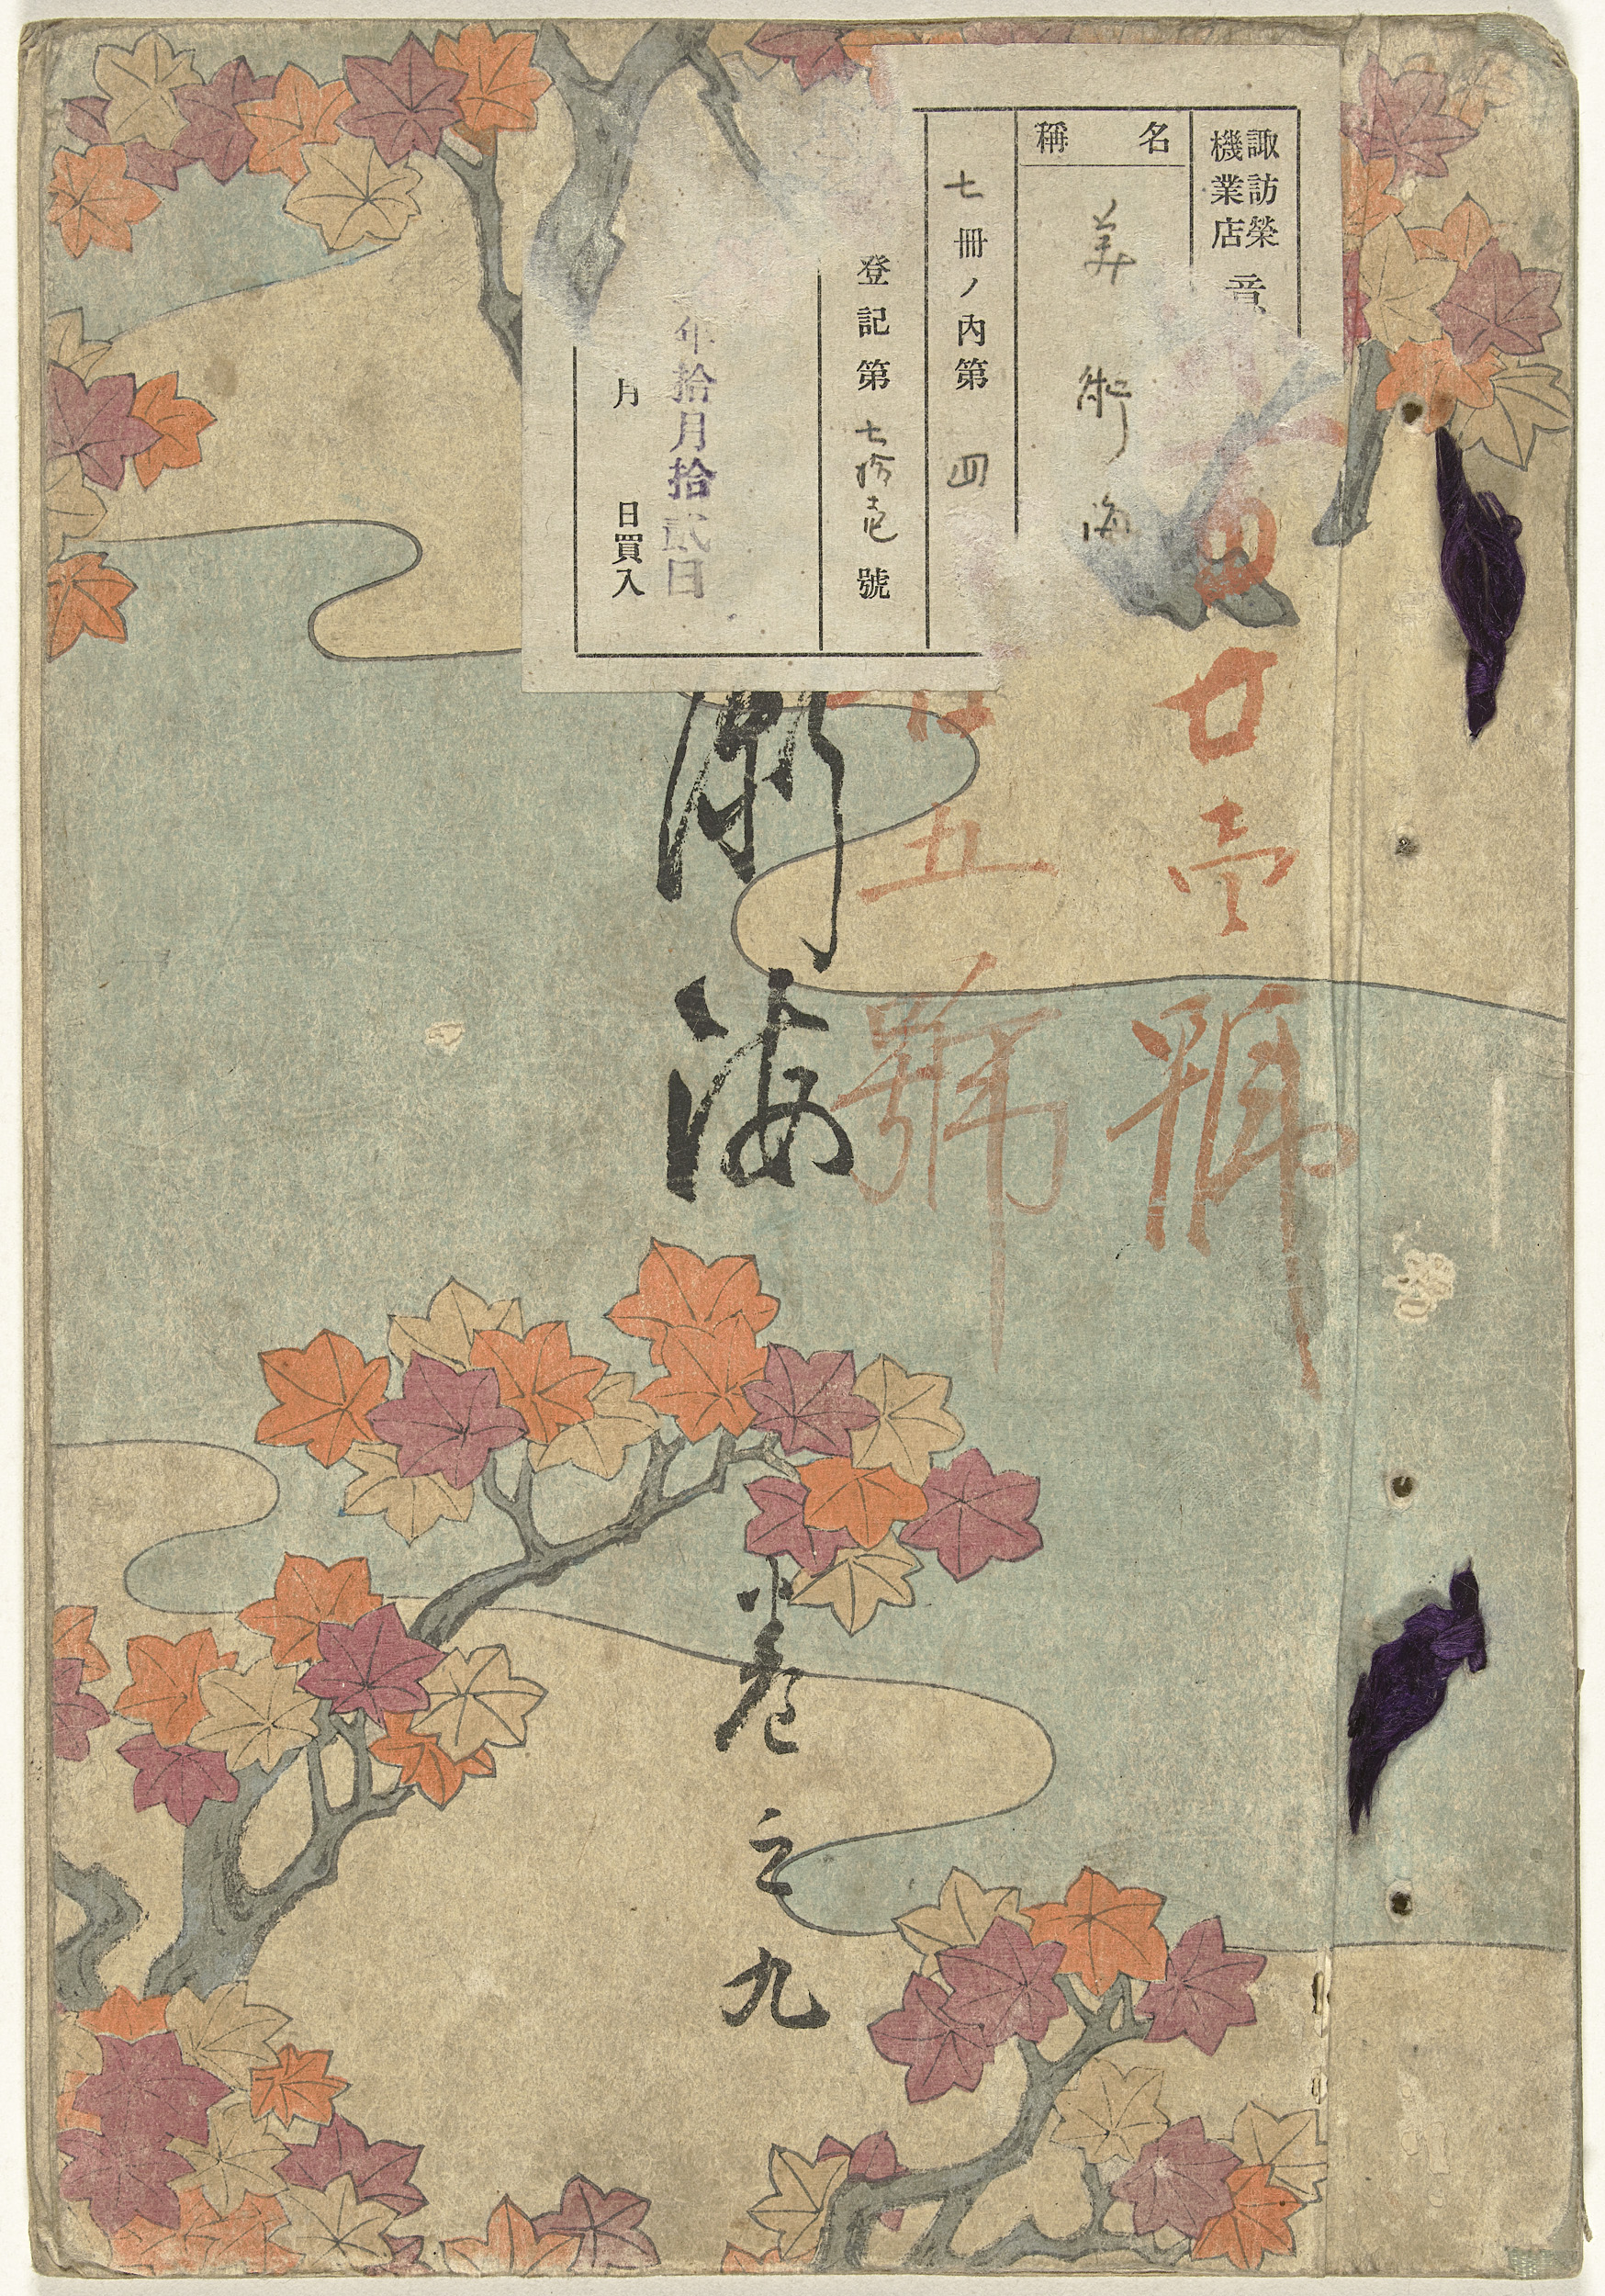 諏訪榮
機業店
名稱
美術海
七冊ノ内第四
登記第七拾壱號
年拾月拾貮日
月日買入
廿壱號
五號
術海
巻之九